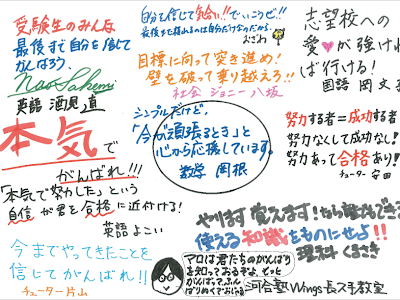 受験生のみんな
最後まで自分を信じて
がんばろう。
英語
自分を信じて気合い!!でいこうぜ!!
最後まで頼れるのは自分だけなのだから
おざわ
目標に向って突き進め!
壁を破って乗り越えろ!!
社会 ジョニー 八坂
志望校への
愛♥が強けれ
ば行ける!
国語 岡
本気で
がんばれ!!!
「本気で努力した」という
自信が君を合格に近付ける!
英語 よこい
シンプルだけど、
「今が頑張るとき」と
心から応援しています。
数学 岡根
努力する者=成功する者
努力なくして成功なし!
努力あって合格あり!
チューター 安田
今までやってきたことを
信じてがんばれ!!
チューター 片山
やります 覚えます!なら誰でもできる
使える知識をものにせよ!!
理科 くまさき
マロは君たちのがんばり
を知っておるぞよ。もっと
がんばって、ふん
ばりぬくでおじゃる
河合塾Wings長久手教室